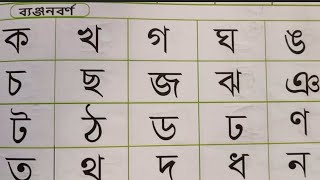 ব্যঞ্জনবর্ণ
ক খ গ ঘ ঙ
চ ছ জ ঝ ঞ
ট ঠ ড ঢ ণ
ত থ দ ধ ন